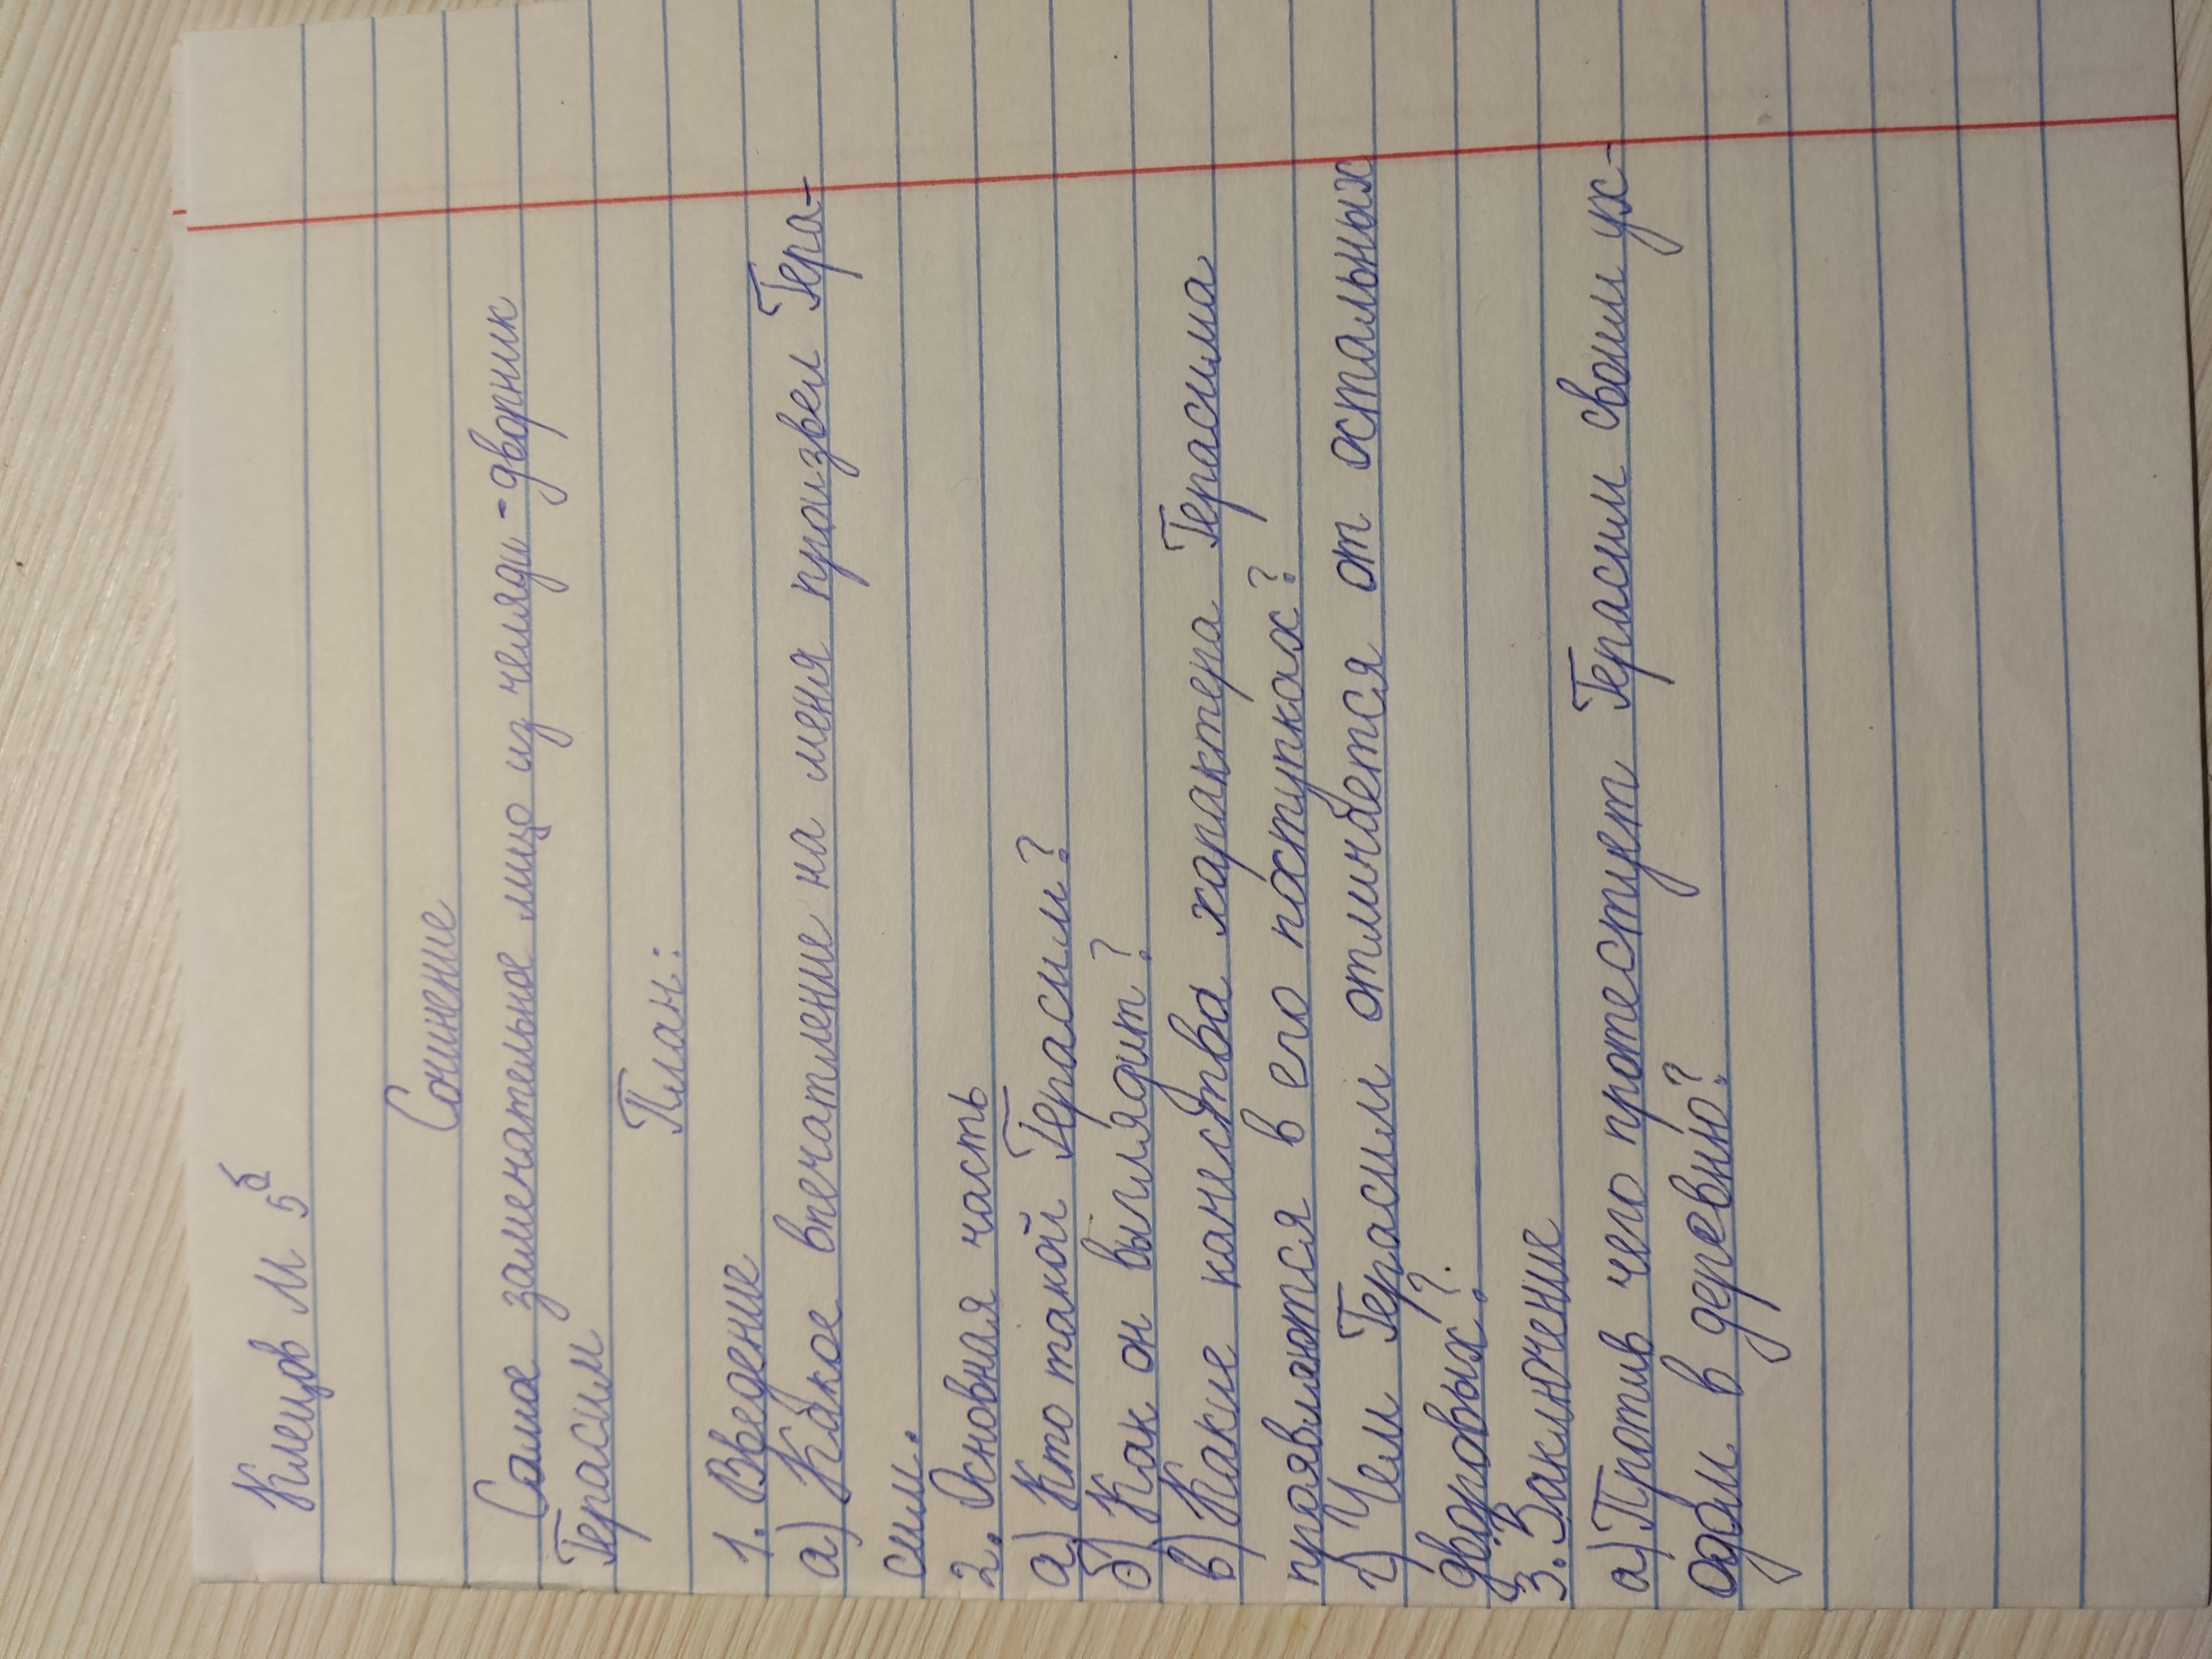 Клецов М 5б
Сочинение
Самое замечательное лицо из челяди - дворник
Герасим
План:
1. Введение
а) Какое впечатление на меня произвел Гера-
сим.
2. Основная часть
а) Кто такой Герасим?
б) Как он выглядит?
в) Какие качества характера Герасима
проявляются в его поступках?
г) Чем Герасим отличается от остальных
дворовых?
3. Заключение
а) Против чего протестует Герасим своим ух-
одом в деревню?